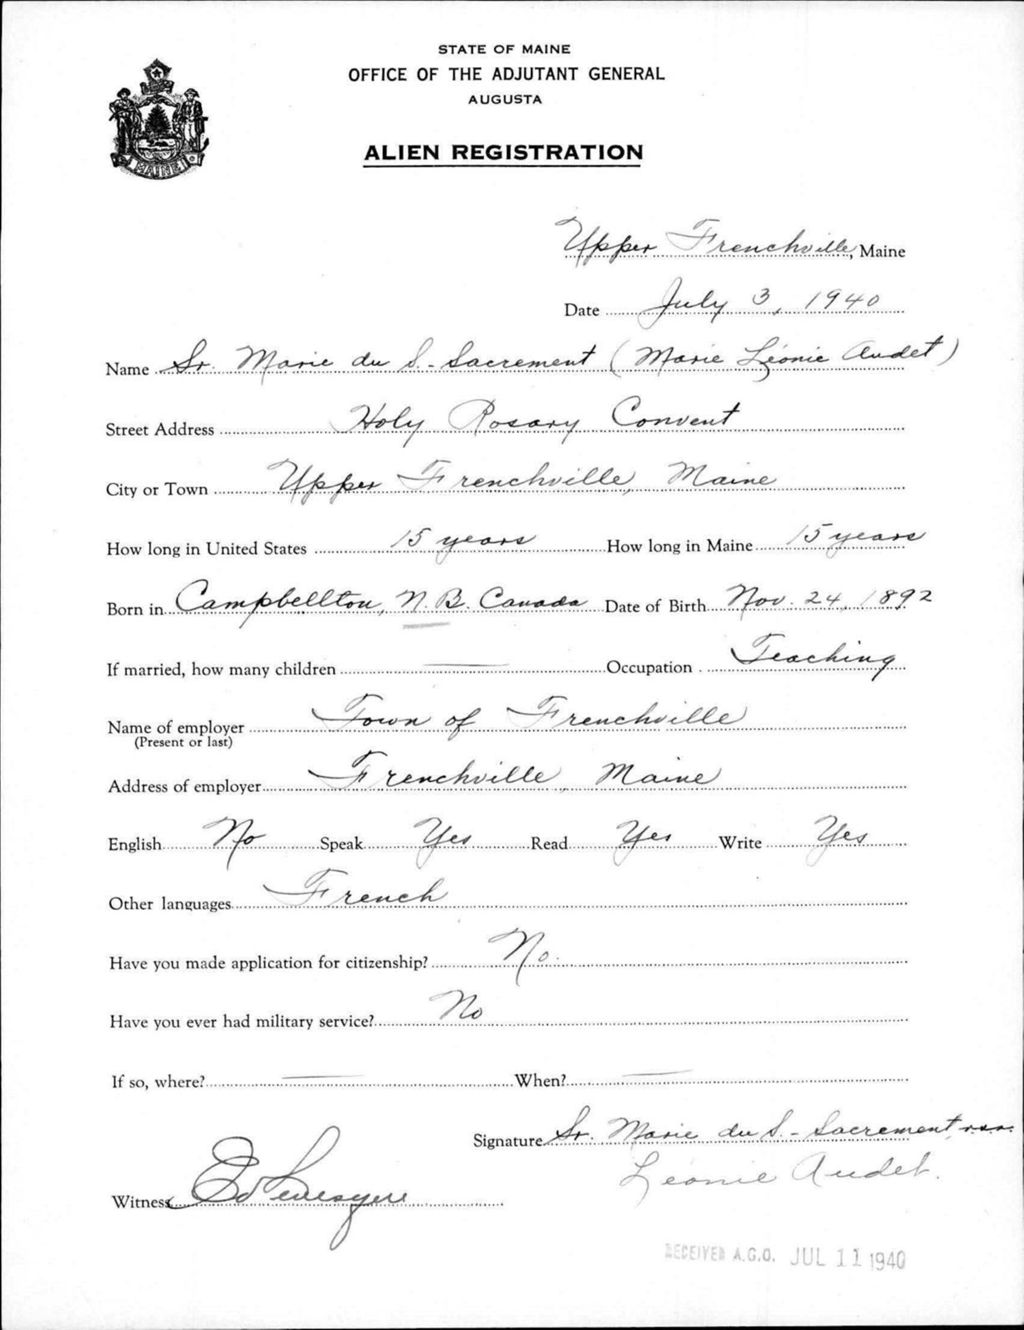 STATE OF MAINE
OFFICE OF THE ADJUTANT GENERAL
AUGUSTA
ALIEN REGISTRATION
MAINE
Upper Frenchville, Maine
Date July 3, 1940
Name Sr. Marie du S.-Sacrement (Marie Léonie Audet)
Street Address Holy Rosary Convent
City or Town Upper Frenchville, Maine
How long in United States 15 years How long in Maine 15 years
Born in Campbellton, N.B. Canada Date of Birth Nov. 24, 1892
If married, how many children — Occupation Teaching
Name of employer Town of Frenchville
(Present or last)
Address of employer Frenchville, Maine
English No Speak Yes Read Yes Write Yes
Other languages French
Have you made application for citizenship? No.
Have you ever had military service? No
If so, where? — When? —
Signature Sr. Marie du S.-Sacrement
Léonie Audet.
Witness
RECEIVED A.G.O. JUL 11 1940